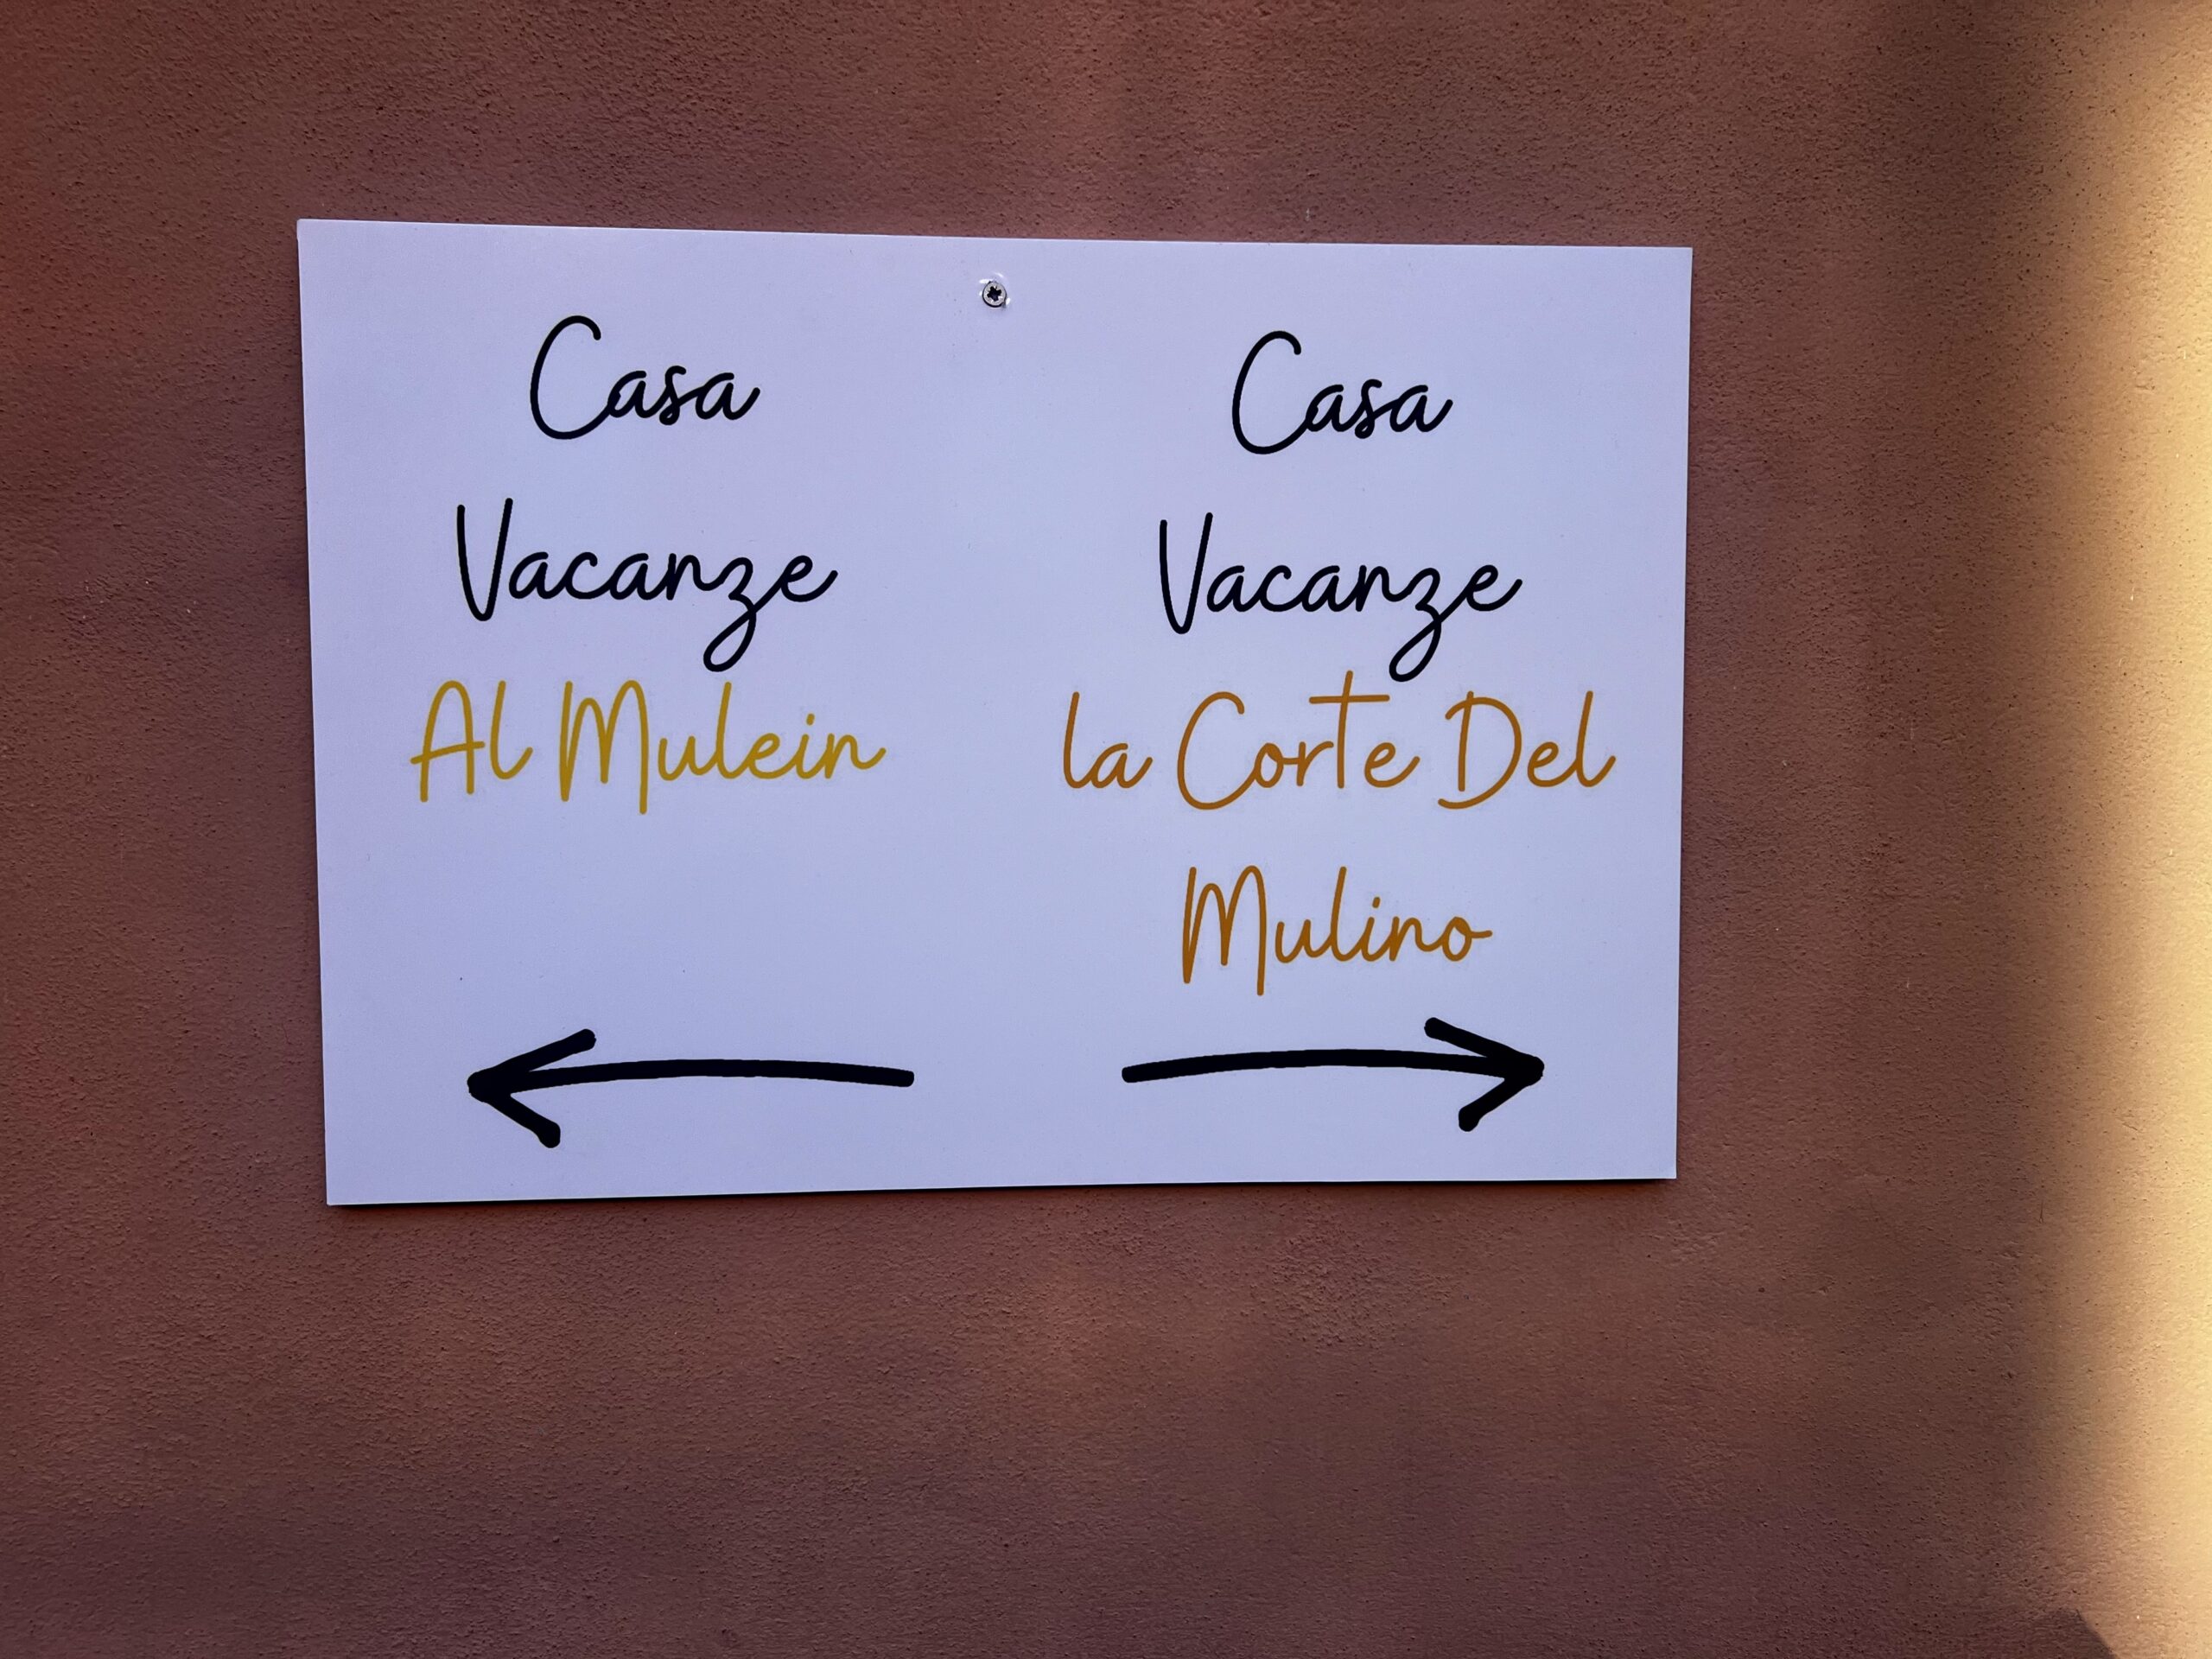 Casa
Vacanze
Al Mulein
Casa
Vacanze
la Corte Del
Mulino